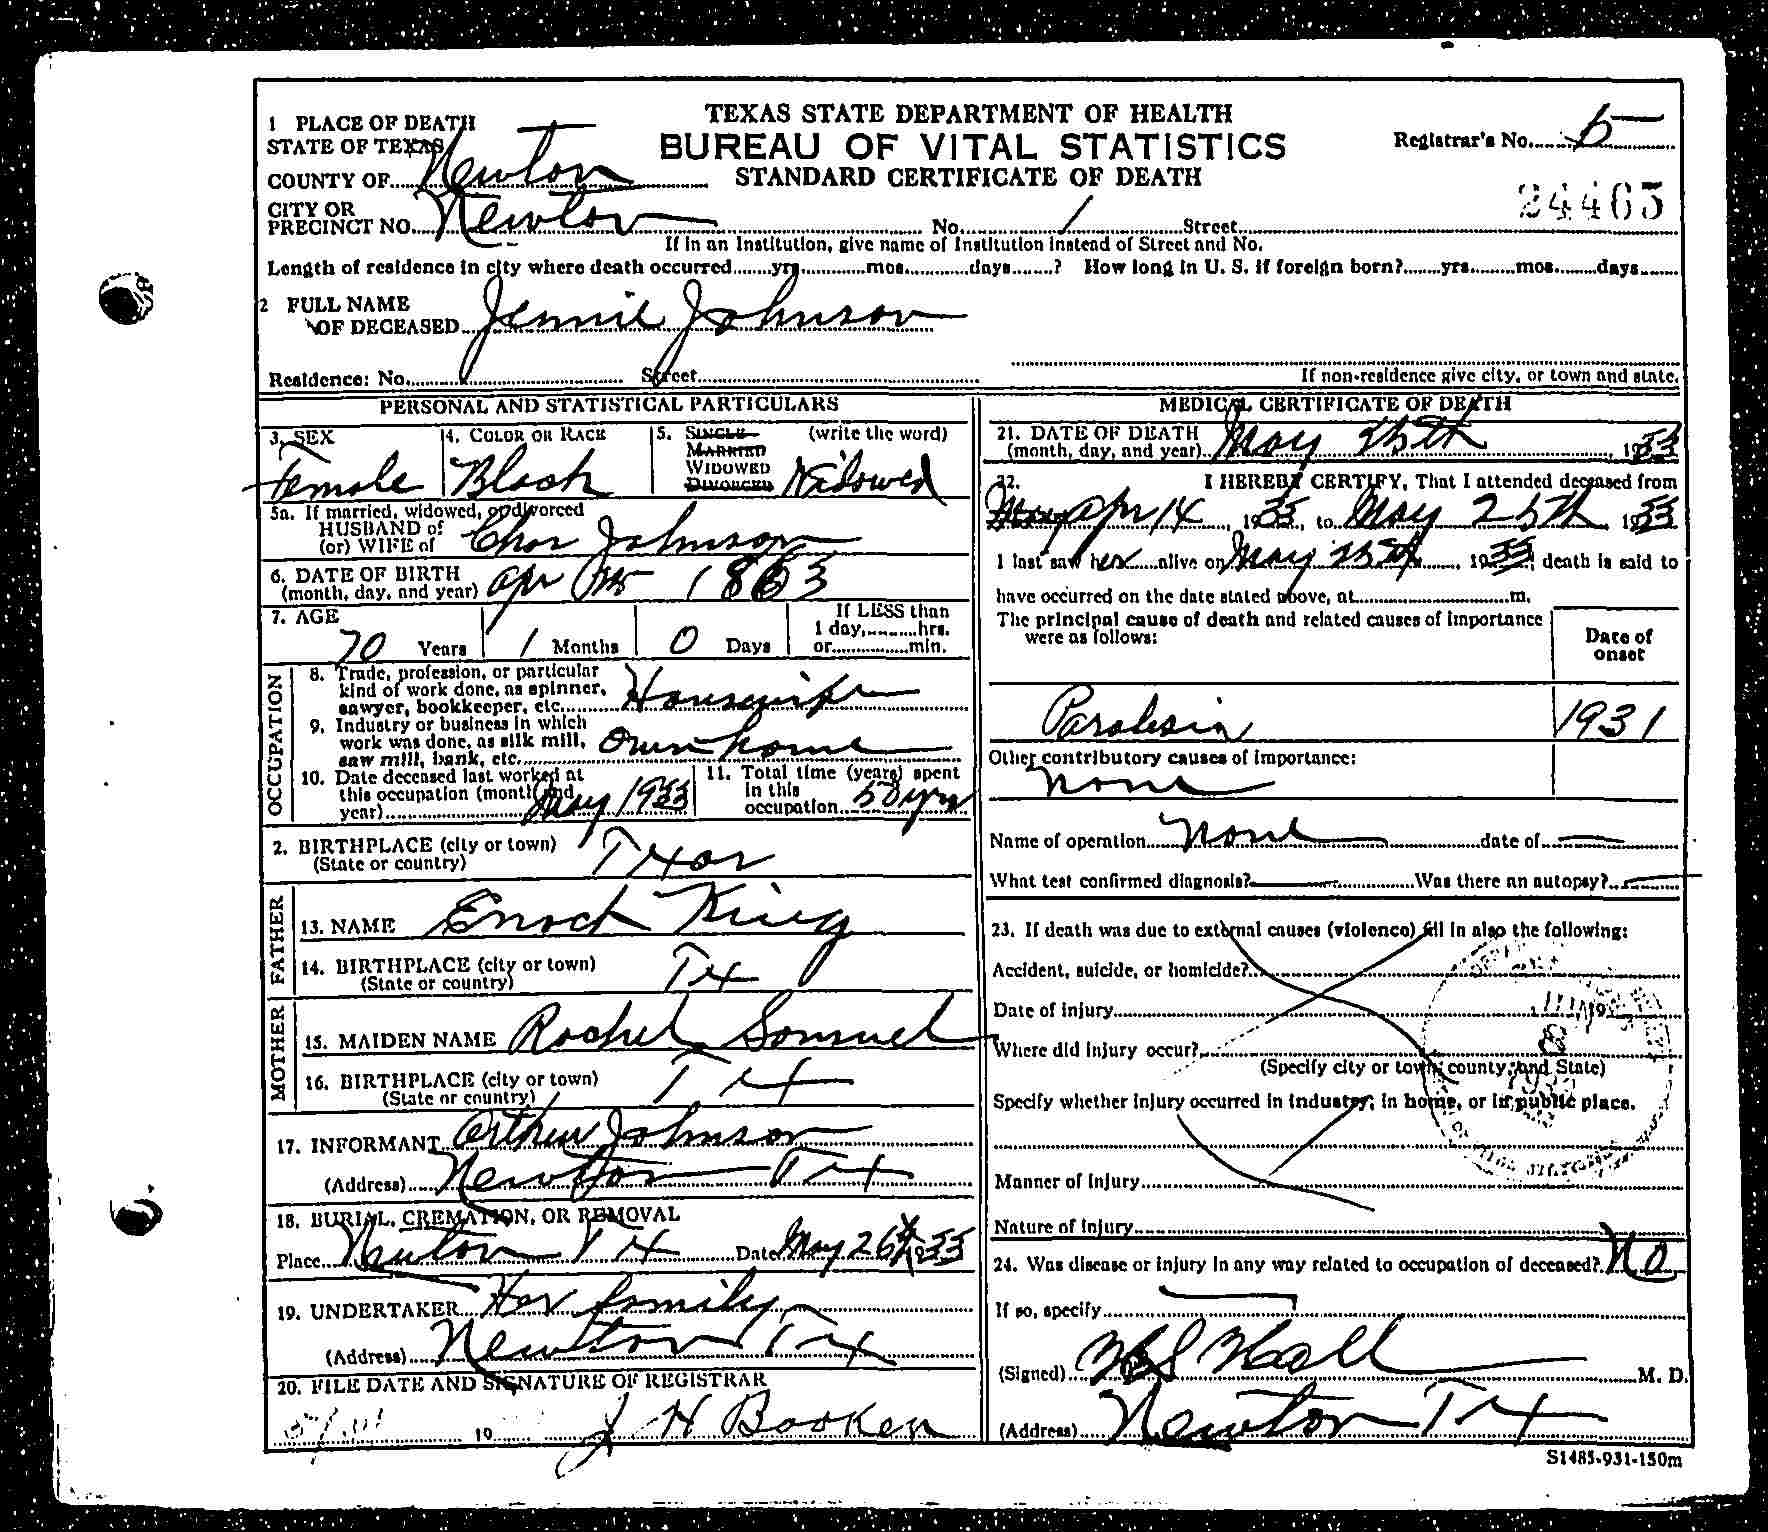 TEXAS STATE DEPARTMENT OF HEALTH
BUREAU OF VITAL STATISTICS
STANDARD CERTIFICATE OF DEATH
1 PLACE OF DEATH
STATE OF TEXAS
COUNTY OF Newton
CITY OR
PRECINCT NO. Newton No. 1 Street
Registrar's No. 5
24465
If in an Institution, give name of Institution instead of Street and No.
Length of residence in city where death occurred yrs mos. days ? How long in U. S. if foreign born? yrs. mos. days
2 FULL NAME
OF DECEASED Jennie Johnson
Residence: No. Street
If non-residence give city, or town and state.
PERSONAL AND STATISTICAL PARTICULARS
3. SEX 4. COLOR OR RACE 5. SINGLE (write the word)
MARRIED
WIDOWED
DIVORCED
Female Black Widowed
5a. If married, widowed, or divorced
HUSBAND of
(or) WIFE of Chas Johnson
6. DATE OF BIRTH
(month, day, and year) Apr 1863
7. AGE If LESS than
1 day, hrs.
70 Years 1 Months 0 Days or min.
OCCUPATION
8. Trade, profession, or particular
kind of work done, as spinner,
sawyer, bookkeeper, etc. Housewife
9. Industry or business in which
work was done, as silk mill,
saw mill, bank, etc. Own home
10. Date deceased last worked at
this occupation (month and
year) May 1933
11. Total time (years) spent
in this
occupation 50 yrs
2. BIRTHPLACE (city or town)
(State or country) Texas
FATHER
13. NAME Enoch King
14. BIRTHPLACE (city or town)
(State or country) Tex
MOTHER
15. MAIDEN NAME Rachel Samuel
16. BIRTHPLACE (city or town)
(State or country) Tex
17. INFORMANT Arthur Johnson
(Address) Newton Tex
18. BURIAL, CREMATION, OR REMOVAL
Place Newton Tex Date May 26th 1933
19. UNDERTAKER Her family
(Address) Newton Tex
20. FILE DATE AND SIGNATURE OF REGISTRAR
19 J H Booker
MEDICAL CERTIFICATE OF DEATH
21. DATE OF DEATH
(month, day, and year) May 25th, 1933
22. I HEREBY CERTIFY, That I attended deceased from
May Apr 14, 1933, to May 25th 1933
I last saw her alive on May 25th, 1933, death is said to
have occurred on the date stated above, at m.
The principal cause of death and related causes of importance
were as follows:
Date of
onset
1931
Other contributory causes of importance:
None
Name of operation None date of
What test confirmed diagnosis? Was there an autopsy?
23. If death was due to external causes (violence) fill in also the following:
Accident, suicide, or homicide?
Date of injury 19
Where did injury occur?
(Specify city or town, county, and State)
Specify whether injury occurred in industry, in home, or in public place.
Manner of Injury
Nature of Injury
24. Was disease or injury in any way related to occupation of deceased? No
If so, specify
(Signed) Hall M. D.
(Address) Newton Tex
S1485-931-150m